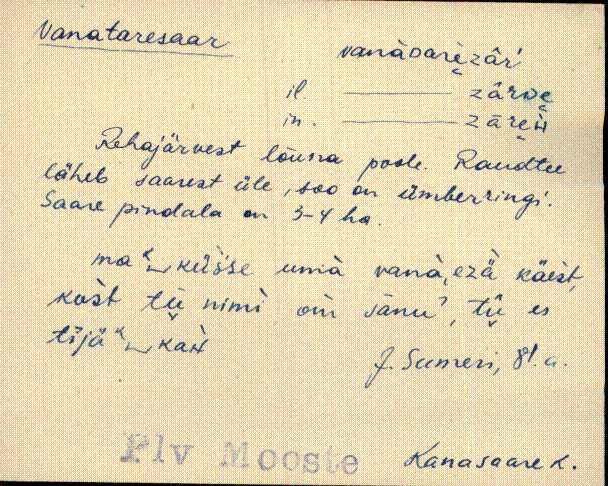 Vanataresaar
vanàDarèzâŕ
il. ——— zârDe
in. ——— zāreн
Rehajärvest lõuna poole. Raudtee
läheb saarest üle, soo on ümberringi.
Saare pindala on 3-4 ha.
ma küšše umà vanà, ezä käest,
kost tṷ̄ nimì om sānu, tṷ̄ es
tījä kaн
J. Sumeri, 81. a.
Plv Mooste Kanasaare k.